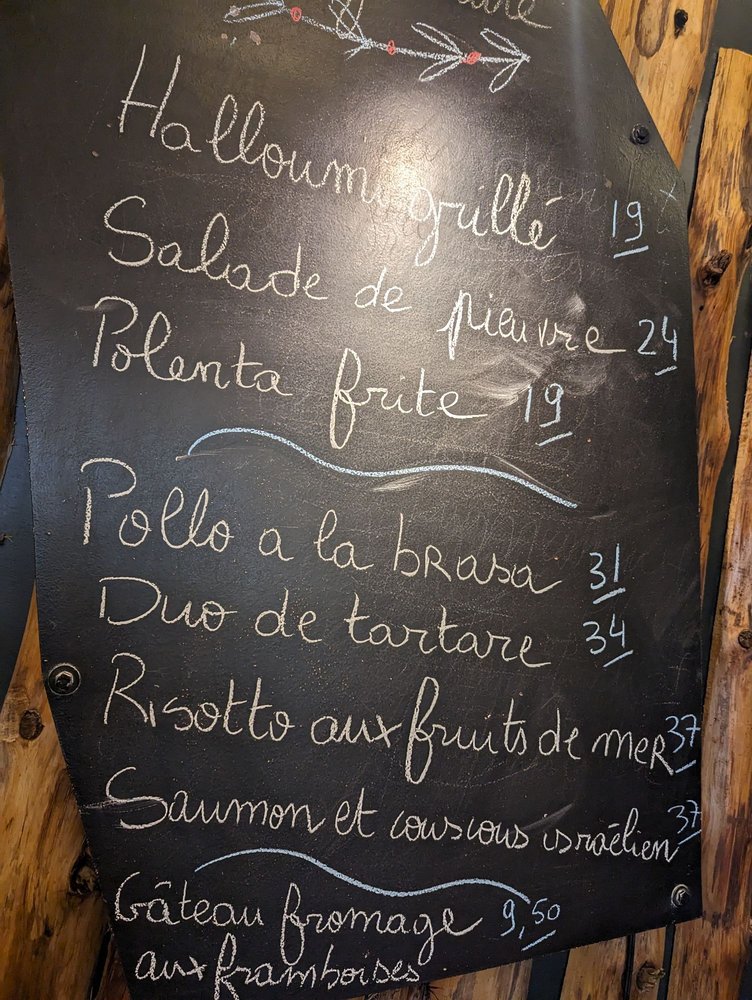 Halloumi grillé 19
Salade de pieuvre 24
Polenta frite 19
Pollo a la brasa 31
Duo de tartare 34
Risotto aux fruits de mer 37
Saumon et couscous israélien 37
Gâteau fromage 9,50
aux framboises